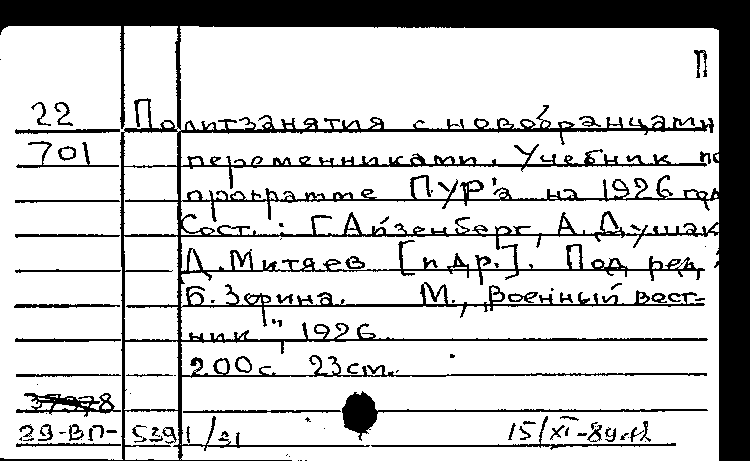 П
22 Политзанятия с новобранцами
701 переменниками. Учебник по
программе ПУР'а на 1926 год
Сост.: Г. Айзенберг, А. Душак
Д. Митяев [и др.]. Под ред.
Б. Зорина. М., „Военный вест-
ник", 1926
200 с. 23 см.
37978
29-ВП-5391/31 15/XI-89